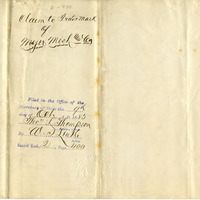 Claim to Trade Mark
of
Meyer
Filed in the Office of the
Secretary of State the 9th
day of Oct 1883
Thos L. Thompson
By
Record Book 2 Page 400